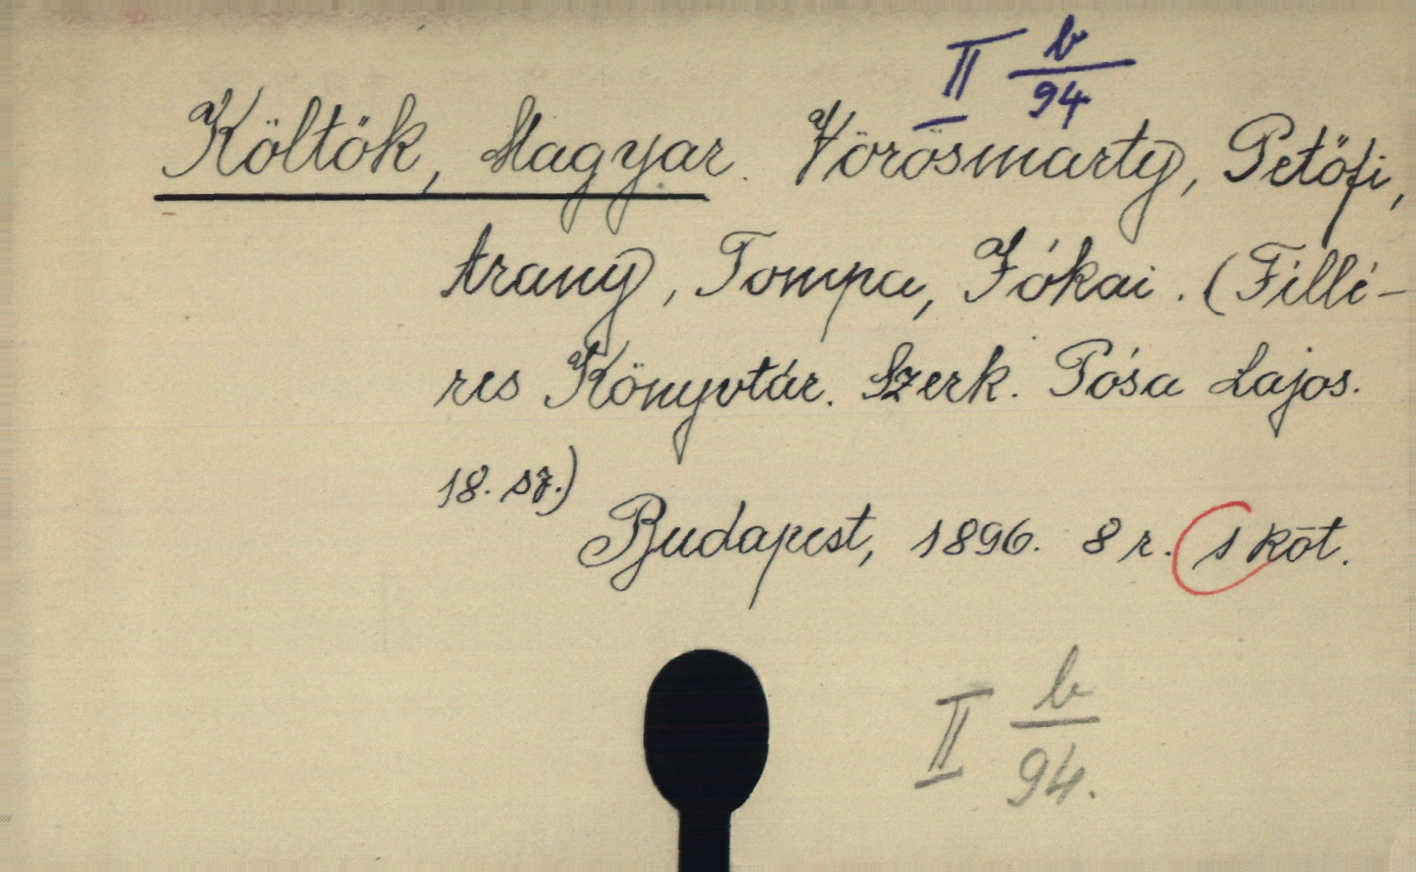 II b/94
Költök, Magyar. Vörösmarty, Petőfi,
Arany, Tompa, Jókai. (Fillé-
res Könyvtár. Szerk. Pósa Lajos.
18. sz.)
Budapest, 1896. 8 r. 1 köt.
II b/94.